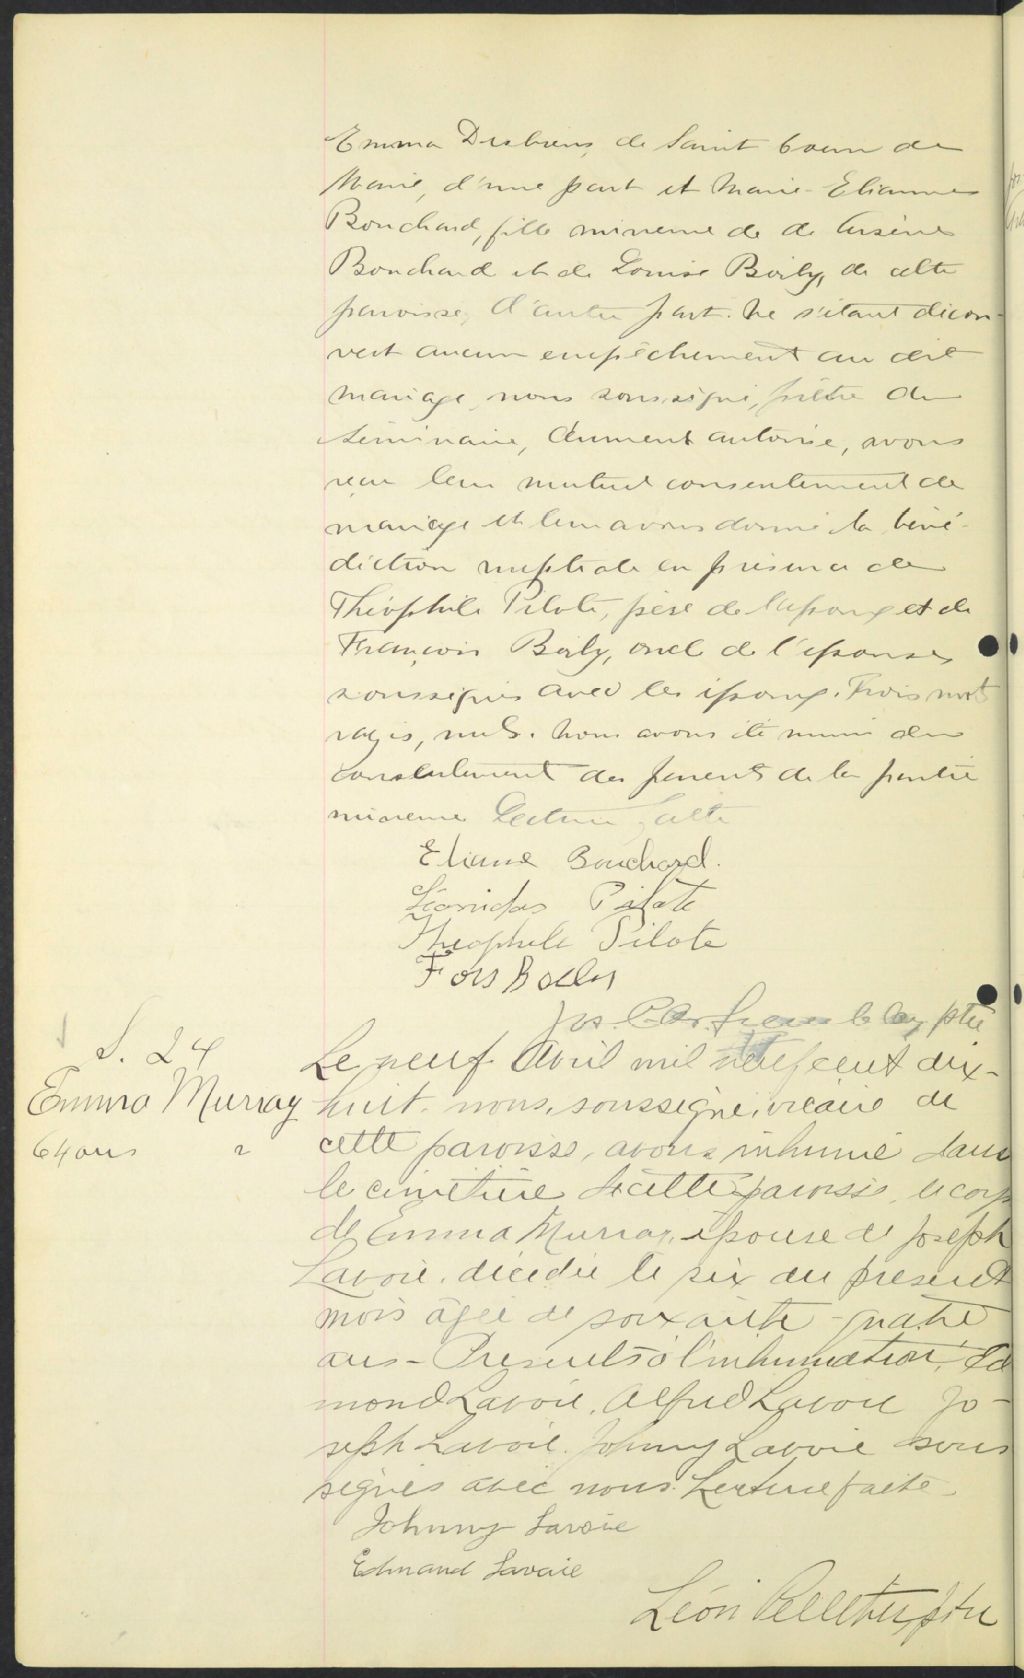 Emma Desbiens, de Saint Coeur de
Marie, d'une part et Marie-Elianne
Bouchard, fille mineure de de Arsène
Bouchard et de Louise Boily, de cette
paroisse, d'autre part. Ne s'étant décou-
vert aucun empêchement au dit
mariage, nous soussigné, prêtre du
Séminaire, dûment autorisé, avons
reçu leur mutuel consentement de
mariage et leur avons donné la béné-
diction nuptiale en présence de
Théophile Pilote, père de l'époux et de
François Boily, oncle de l'épouse
soussignés avec les époux. Trois mots
rayés, nuls. Nous avons été muni du
consentement des parents de la partie
mineure Lecture faite
Eliane Bouchard.
Léonidas Pilote
Theophile Pilote
Frs Boily
Jos. ptre
S. 24
Emma Murray
64 ans
Le neuf Avril mil neuf cent dix-
huit, nous, soussigné, vicaire de
cette paroisse, avons inhumé dans
le cimetière de cette paroisse, le corps
de Emma Murray, épouse de Joseph
Lavoie, décédée le six du présent
mois âgée de soixante-quatre
ans - Présents à l'inhumation, Ed
mond Lavoie, Alfred Lavoie Jo-
seph Lavoie, Johnny Lavoie sous
signés avec nous. Lecture faite.
Johnny Lavoie
Edmond Lavoie
Léon Pelletier, ptre